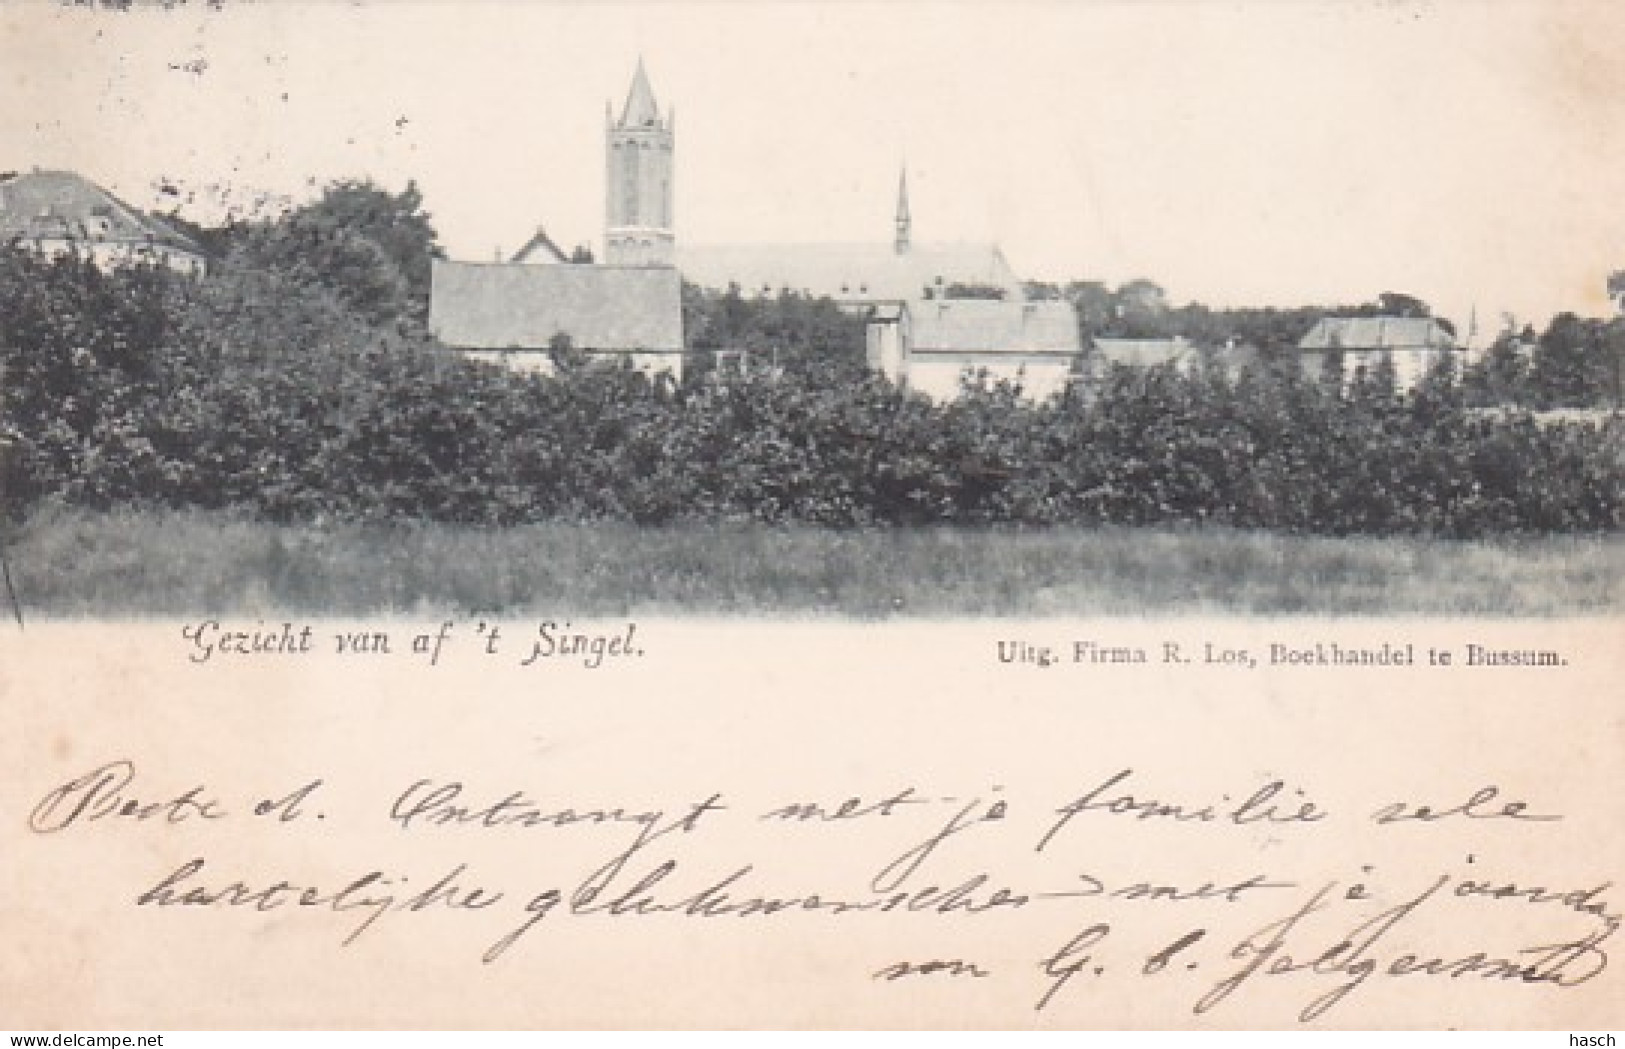 Gezicht van af 't Singel.
Uitg. Firma R. Los, Boekhandel te Bussum.
Beste A. Ontvangt met je familie vele
hartelijke gelukwenschen met je jaardag
van G. C.
www.delcampe.net
hasch